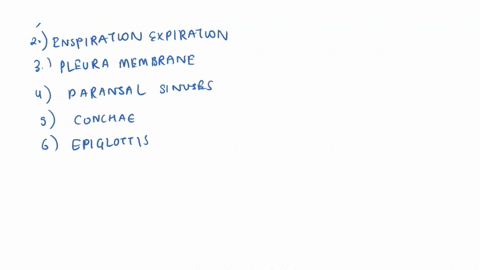 2.) ENSPIRATION EXPIRATION
3.) PLEURA MEMBRANE
4) PARANSAL SINUSES
5) CONCHAE
6) EPIGLOTTIS